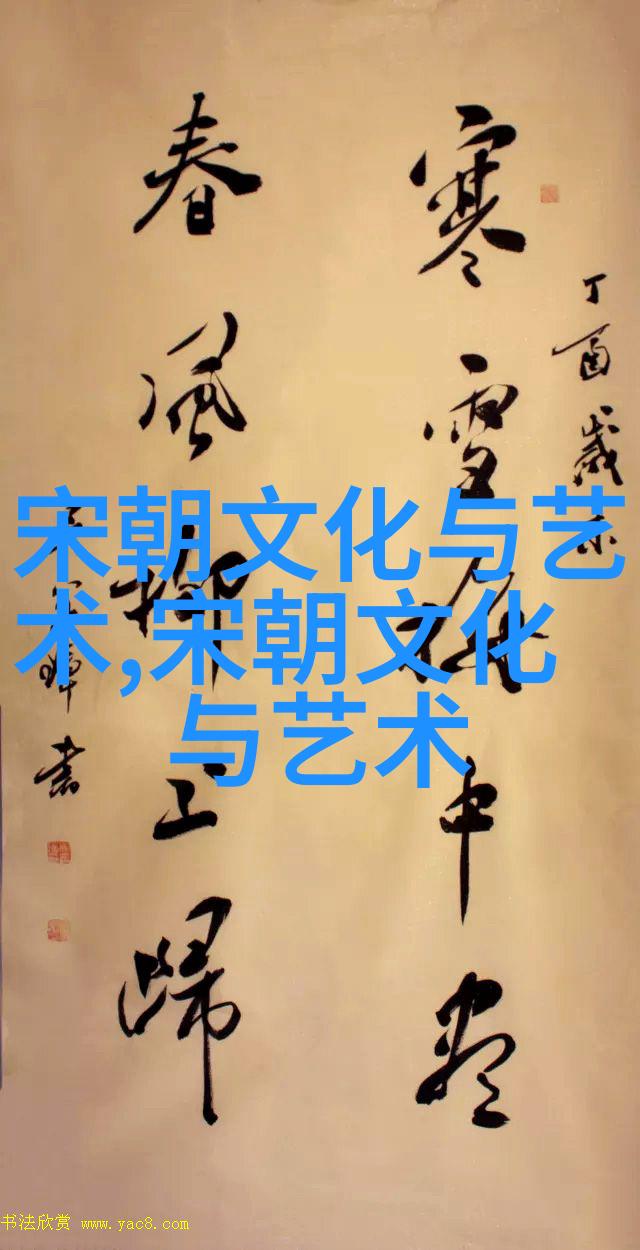 宋朝文化与艺
术,宋朝文化
与艺术
丁酉岁末
寒雪梅中尽
春风柳上归
书
书法欣赏 www.yac8.com